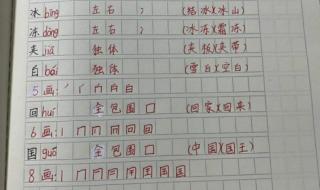 冰 bīng 左右 冫 (结冰)(冰山)
冻 dòng 左右 冫 (冰冻)(霜冻)
夹 jiā 独体 (夹板)(夹带)
白 bái 独体 (雪白)(空白)
5画:
回 huí 全包围 囗 (回家)(回来)
6画: 丨 冂 冂 冋 回 回
国 guó 全包围 囗 (中国)(国王)
8画: 丨 冂 冂 冃 国 国 国